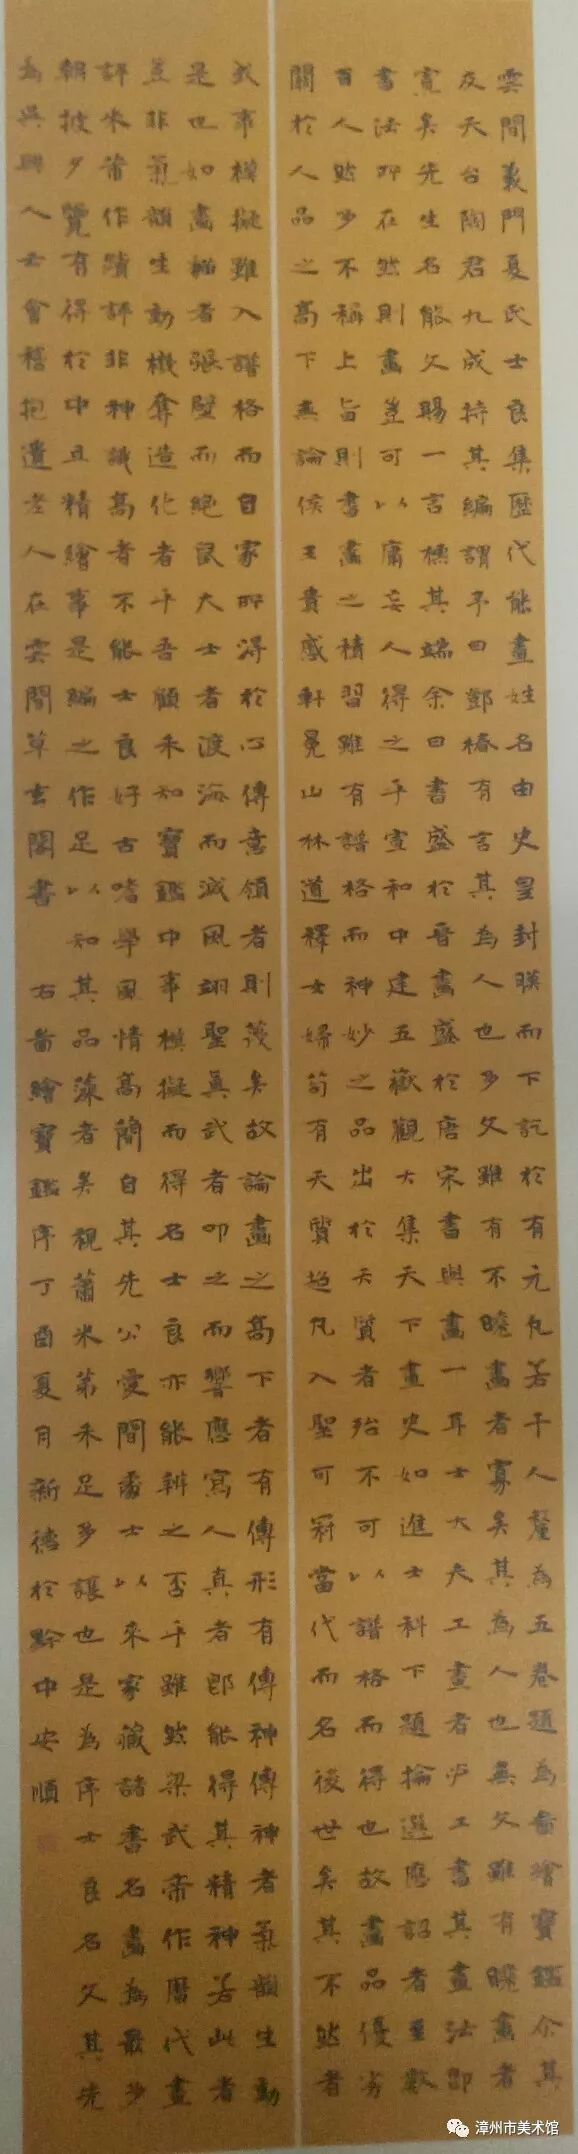 雲間義門夏氏士良集歷代能畫姓名由史皇封膜而下訖於有元凡若干人釐為五卷題為啚繪寶鑑介其
友天台陶君九成持其編謂予曰鄧椿有言其為人也多文雖有不曉畫者寡矣其為人也無文雖有曉畫者
寡矣先生名能文賜一言標其端余曰書盛於晉畫盛於唐宋書與畫一耳士大夫工畫者必工書其畫法即
書法所在然則畫豈可以庸妄人得之乎宣和中建五嶽觀大集天下畫史如進士科下題掄選應詔者至數
百人然多不稱上旨則書畫之積習雖有譜格而神妙之品出於天質者殆不可以譜格而得也故畫品優劣
關於人品之高下無論侯王貴戚軒冕山林道釋女婦苟有天質超凡入聖可冠當代而名後世矣其不然者
或事模擬雖入譜格而自家所得於心傳意領者則蔑矣故論畫之高下者有傳形有傳神傳神者氣韻生動
是也如畫猫者張壁而絕鼠大士者渡海而滅風翊聖真武者叩之而響應寫人真者即能得其精神若此者
豈非氣韻生動機奪造化者乎吾顧未知寶鑑中事模擬而得名士良亦能辨之否乎雖然梁武帝作曆代畫
評米芾作續評非神識高者不能士良好古嗜學風情高簡自其先公愛閒處士以來家藏諸書名畫為最多
朝披夕覽有得於中且精繪事是編之作足以知其品藻者矣視蕭米第未足多讓也是為序士良名文其先
為吳興人士會稽抱遺老人在雲間草玄閣書 右啚繪寶鑑序丁酉夏月新德於黔中安順
漳州市美术馆